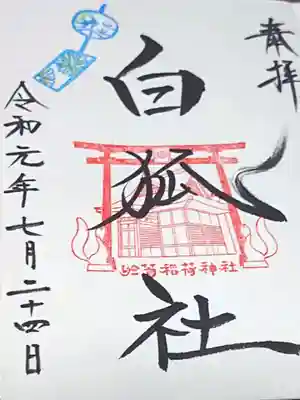 奉拝
白狐社
於菊稲荷神社
令和元年七月二十四日